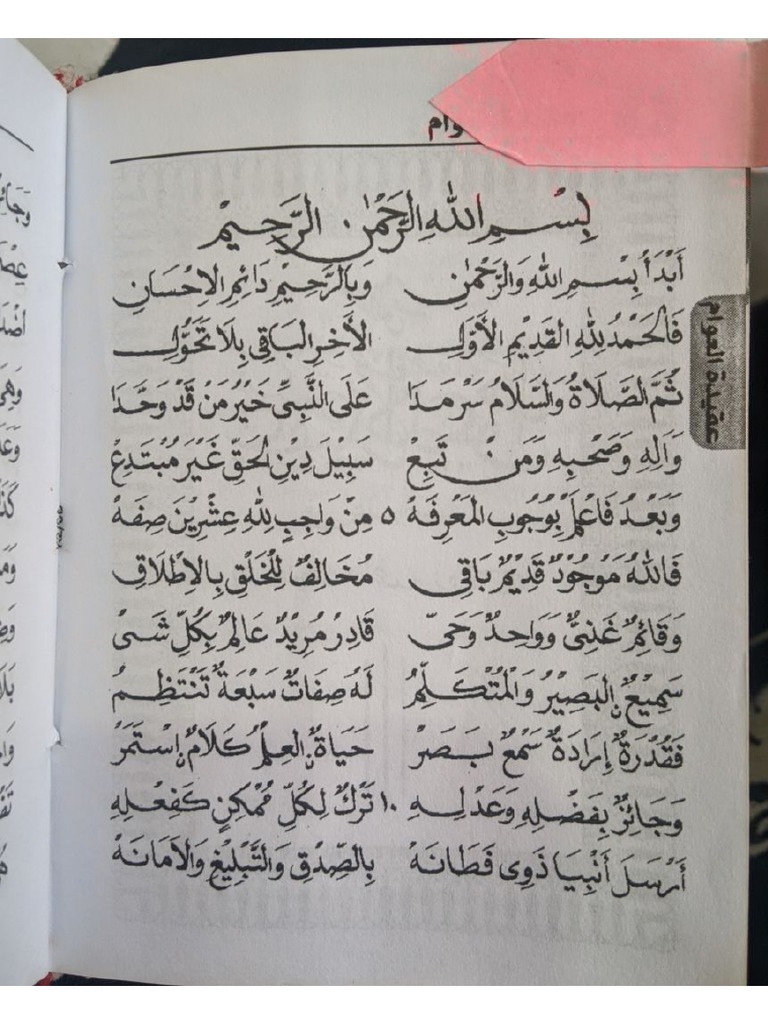 وام
بِسْمِ اللهِ الرَّحْمٰنِ الرَّحِيْمِ
أَبْدَأُ بِسْمِ اللهِ وَالرَّحْمٰنِ وَبِالرَّحِيْمِ دَائِمِ الْاِحْسَانِ
فَالْحَمْدُ لِلّٰهِ الْقَدِيْمِ الْأَوَّلِ الْأَخِرِ الْبَاقِى بِلَا تَحَوُّلِ
ثُمَّ الصَّلَاةُ وَالسَّلَامُ سَرْمَدَا عَلَى النَّبِىِّ خَيْرُ مَنْ قَدْ وَحَّدَا
وَآلِهِ وَصَحْبِهِ وَمَنْ تَبِعْ سَبِيْلَ دِيْنِ الْحَقِّ غَيْرَ مُبْتَدِعْ
وَبَعْدُ فَاعْلَمْ بِوُجُوْبِ الْمَعْرِفَهْ ٥ مِنْ وَاجِبٍ لِلّٰهِ عِشْرِيْنَ صِفَهْ
فَاللهُ مَوْجُوْدٌ قَدِيْمٌ بَاقِى مُخَالِفٌ لِلْخَلْقِ بِالْاِطْلَاقِ
وَقَائِمٌ غَنِىٌّ وَوَاحِدٌ وَحَىّ قَادِرْ مُرِيْدٌ عَالِمٌ بِكُلِّ شَىْ
سَمِيْعٌ ۨالْبَصِيْرُ وَالْمُتَكَلِّمُ لَهُ صِفَاتٌ سَبْعَةٌ تَنْتَظِمُ
فَقُدْرَةٌ إِرَادَةٌ سَمْعٌ بَصَرْ حَيَاةٌ ۨالْعِلْمُ كَلَامٌ ۨاسْتَمَرْ
وَجَائِزٌ بِفَضْلِهِ وَعَدْلِهِ ١٠ تَرْكٌ لِكُلِّ مُمْكِنٍ كَفِعْلِهِ
أَرْسَلَ أَنْبِيَا ذَوِى فَطَانَهْ بِالصِّدْقِ وَالتَّبْلِيْغِ وَالْاَمَانَهْ
عقيدة العوام